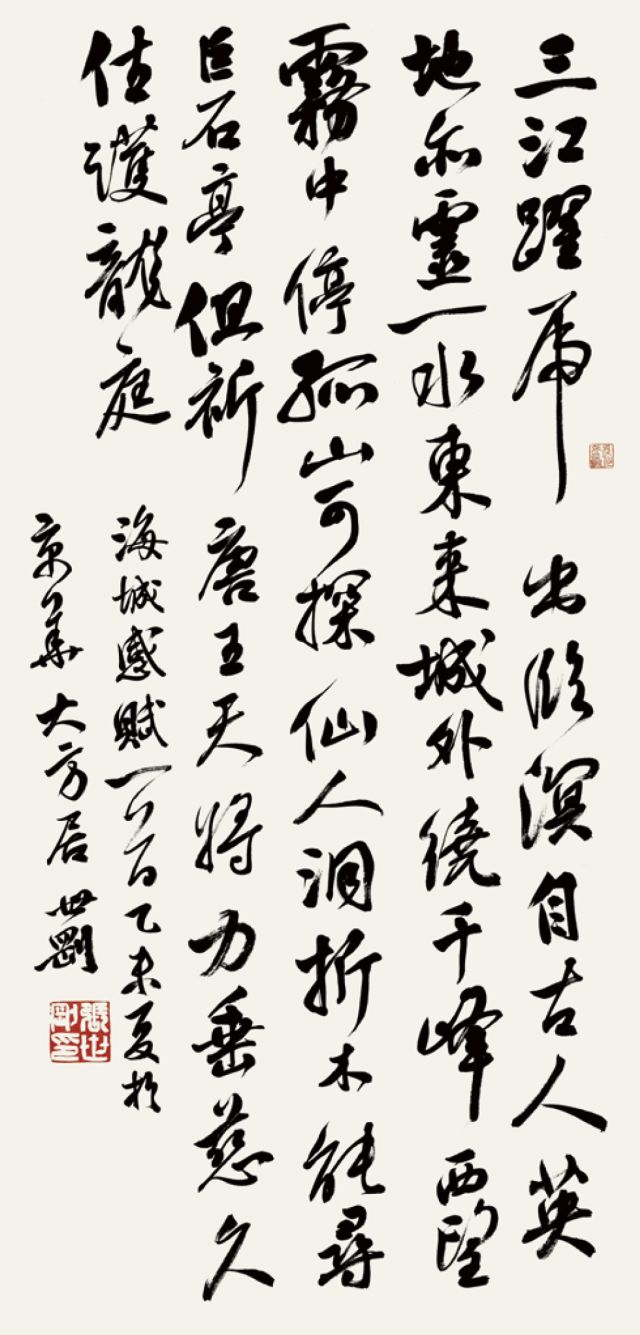 三江躍虎出臨溟自古人英
地亦靈一水東來城外繞千峰西望
霧中停孤山可探仙人洞折木能尋
巨石亭但祈唐王天將力垂慈久
佑護龍庭
海城感賦一首乙未夏於
京華大方居世剛
張世剛印